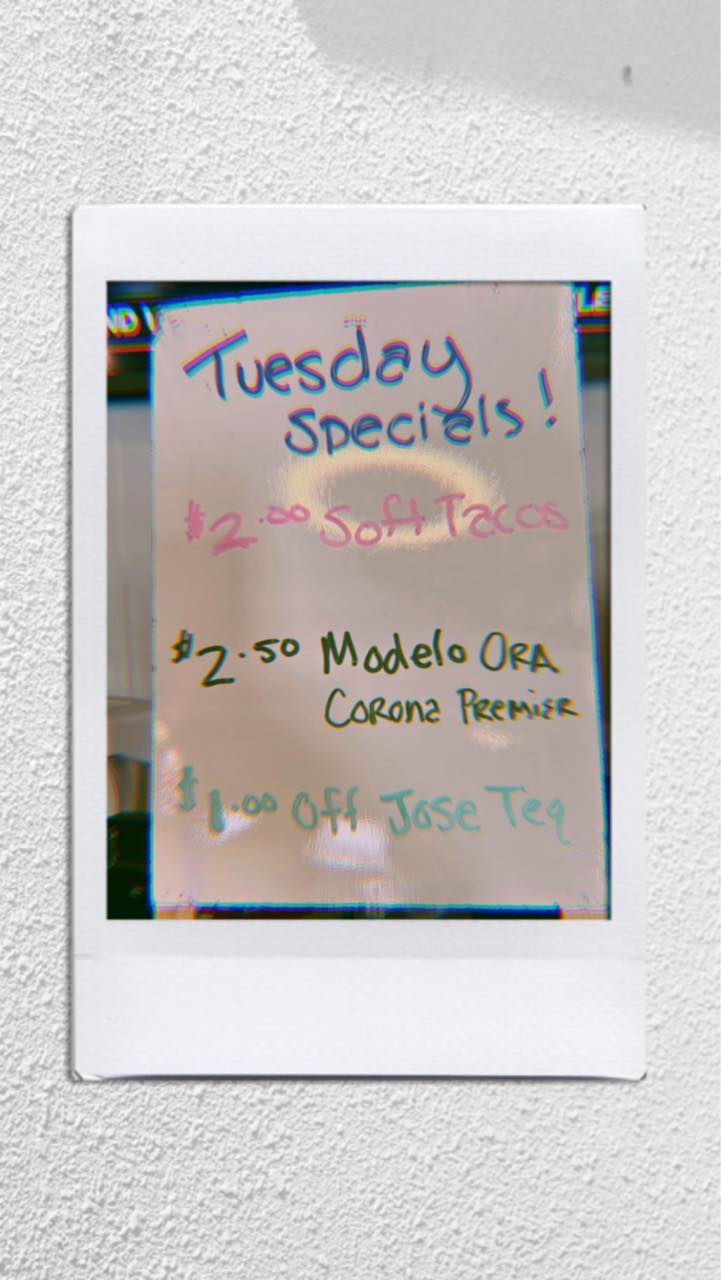 ND
LE
Tuesday
Specials!
$2.00 Soft Tacos
$2.50 Modelo ORA
Corona Premier
$1.00 Off Jose Teq